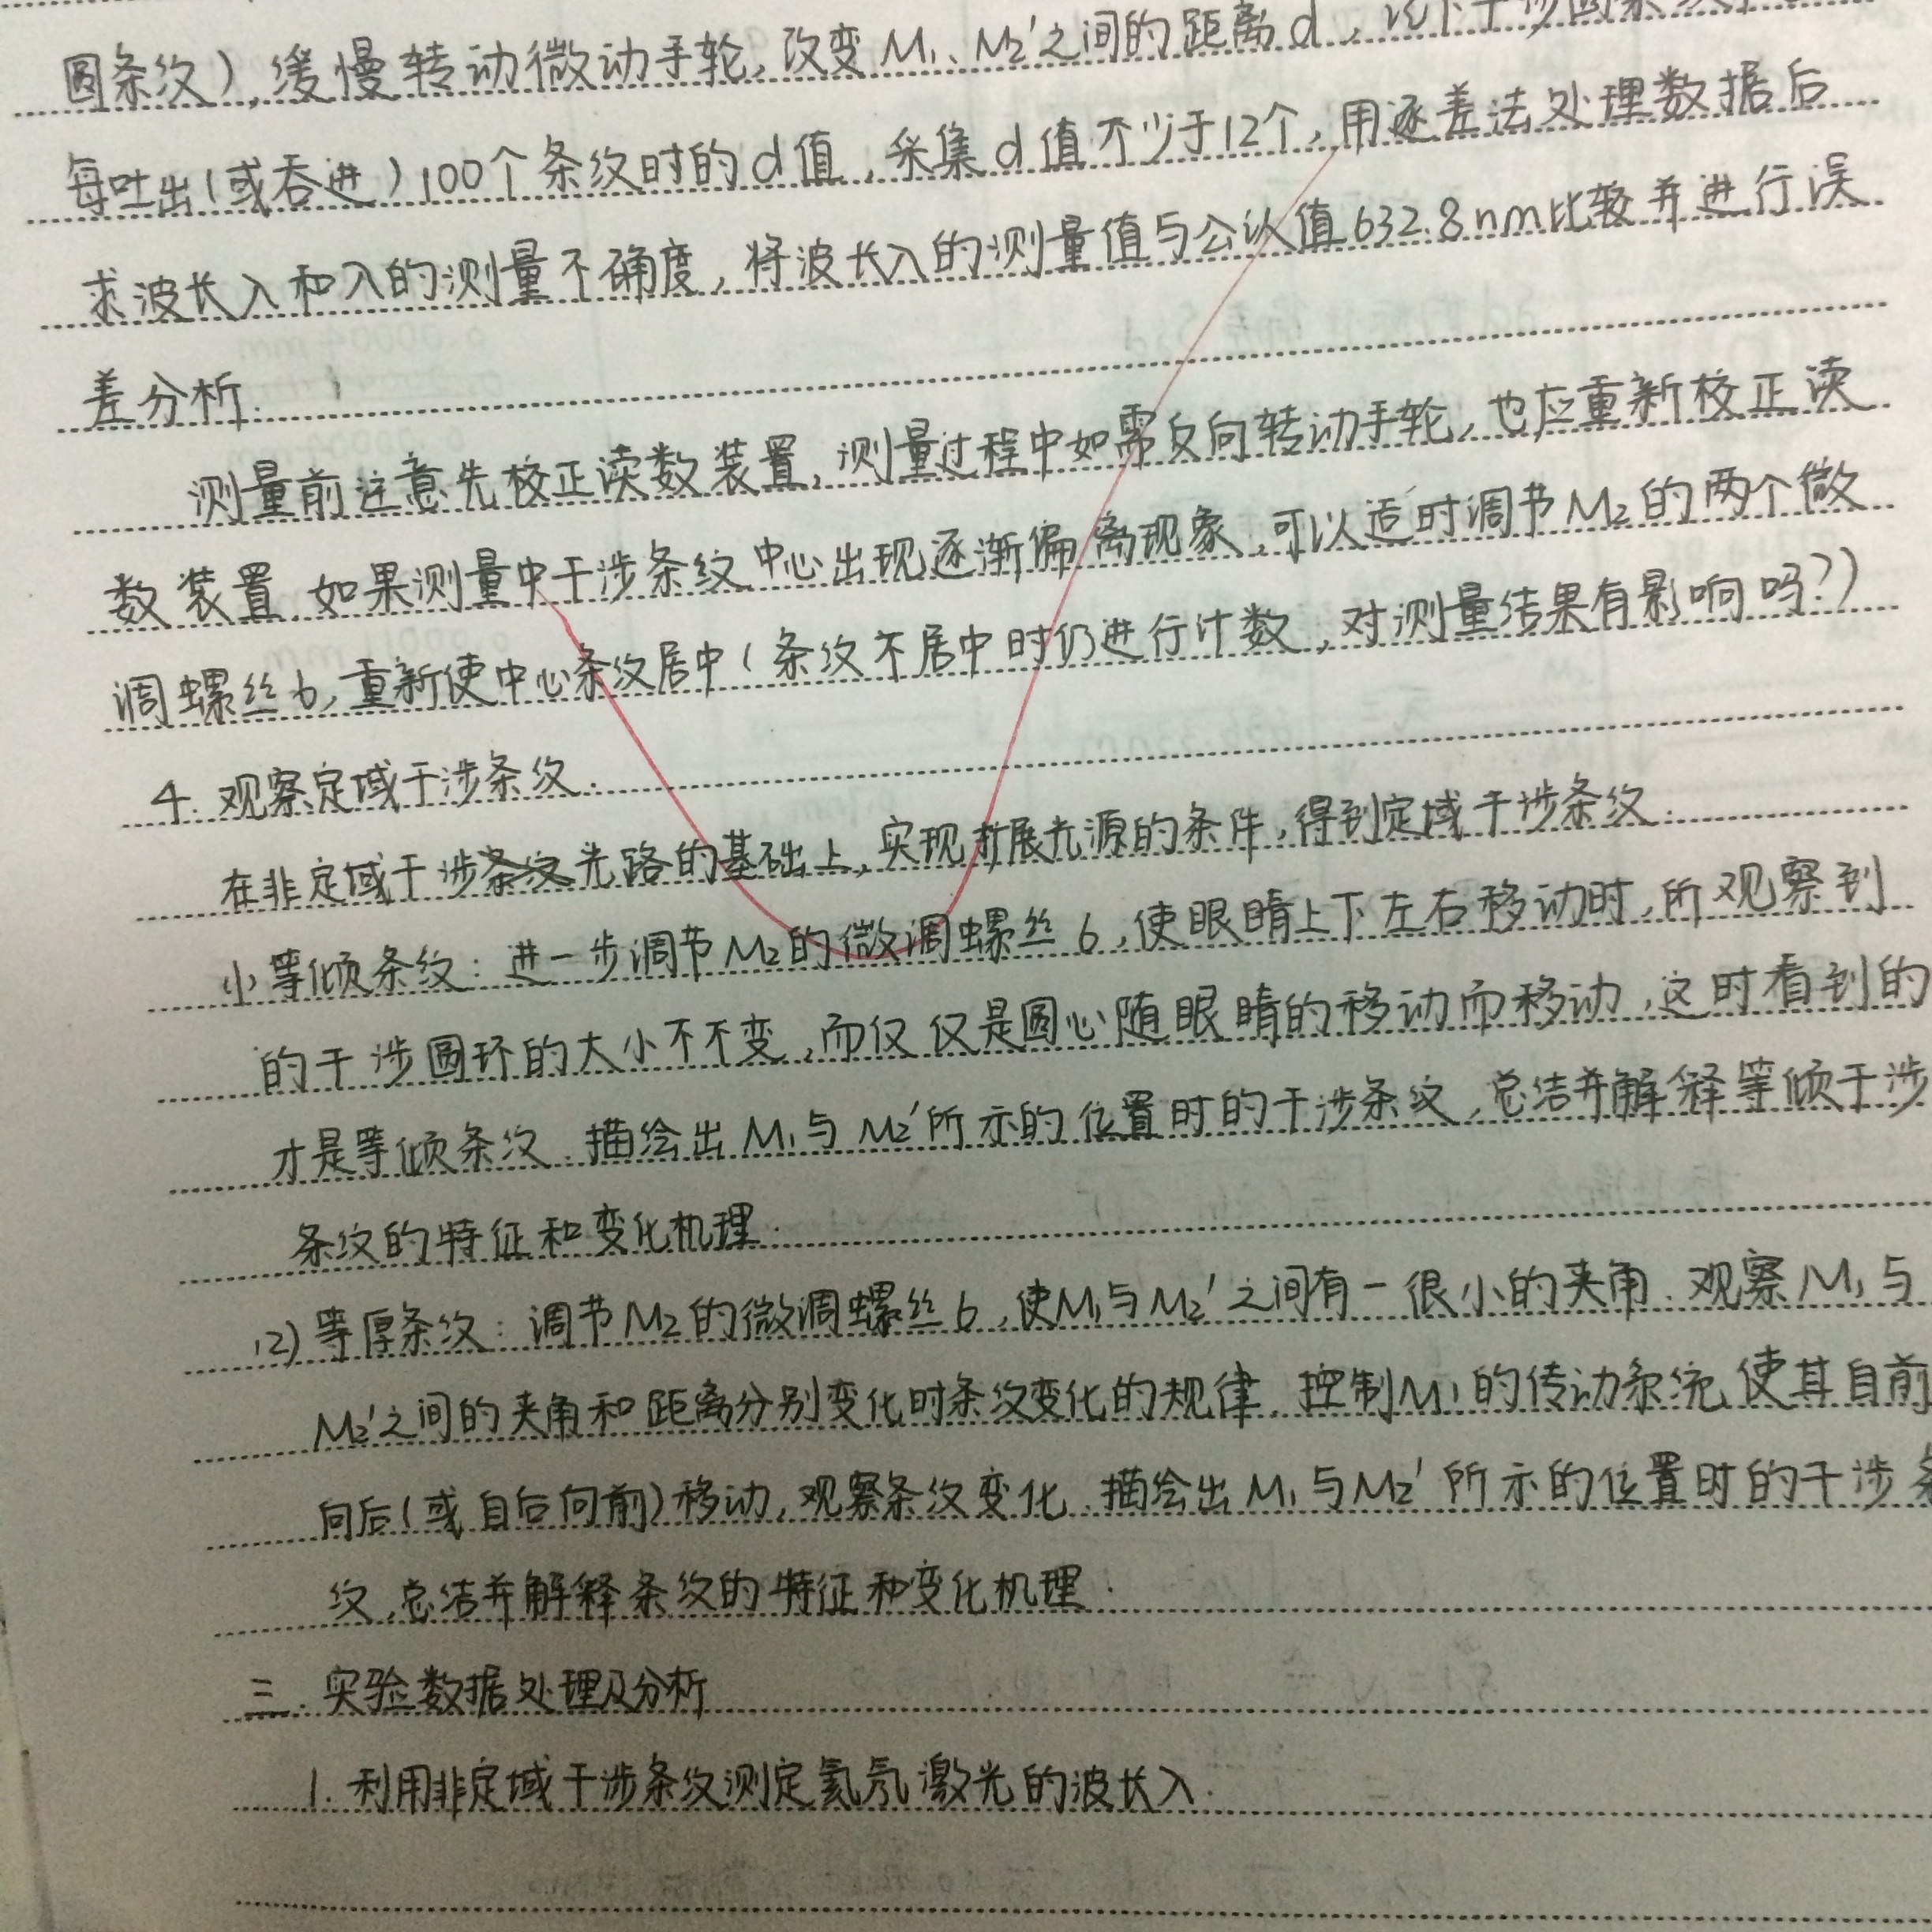 圆条纹),缓慢转动微动手轮,改变M₁、M₂′之间的距离d,记下干涉圆条纹
每吐出(或吞进)100个条纹时的d值,采集d值不少于12个,用逐差法处理数据后
求波长λ和λ的测量不确度,将波长λ的测量值与公认值632.8nm比较并进行误
差分析.
测量前注意先校正读数装置,测量过程中如需反向转动手轮,也应重新校正读
数装置.如果测量中干涉条纹中心出现逐渐偏离现象,可以适时调节M₂的两个微
调螺丝6,重新使中心条纹居中(条纹不居中时仍进行计数,对测量结果有影响吗?)
4.观察定域干涉条纹.
在非定域干涉条纹光路的基础上,实现扩展光源的条件,得到定域干涉条纹.
(1)等倾条纹:进一步调节M₂的微调螺丝6,使眼睛上下左右移动时,所观察到
的干涉圆环的大小不不变,而仅仅是圆心随眼睛的移动而移动,这时看到的
才是等倾条纹.描绘出M₁与M₂′所示的位置时的干涉条纹,总结并解释等倾干涉
条纹的特征和变化机理.
(2)等厚条纹:调节M₂的微调螺丝6,使M₁与M₂′之间有一很小的夹角.观察M₁与
M₂′之间的夹角和距离分别变化时条纹变化的规律.控制M₁的传动系统,使其自前
向后(或自后向前)移动,观察条纹变化.描绘出M₁与M₂′所示的位置时的干涉条
纹,总结并解释条纹的特征和变化机理.
三.实验数据处理及分析
1.利用非定域干涉条纹测定氦氖激光的波长λ.